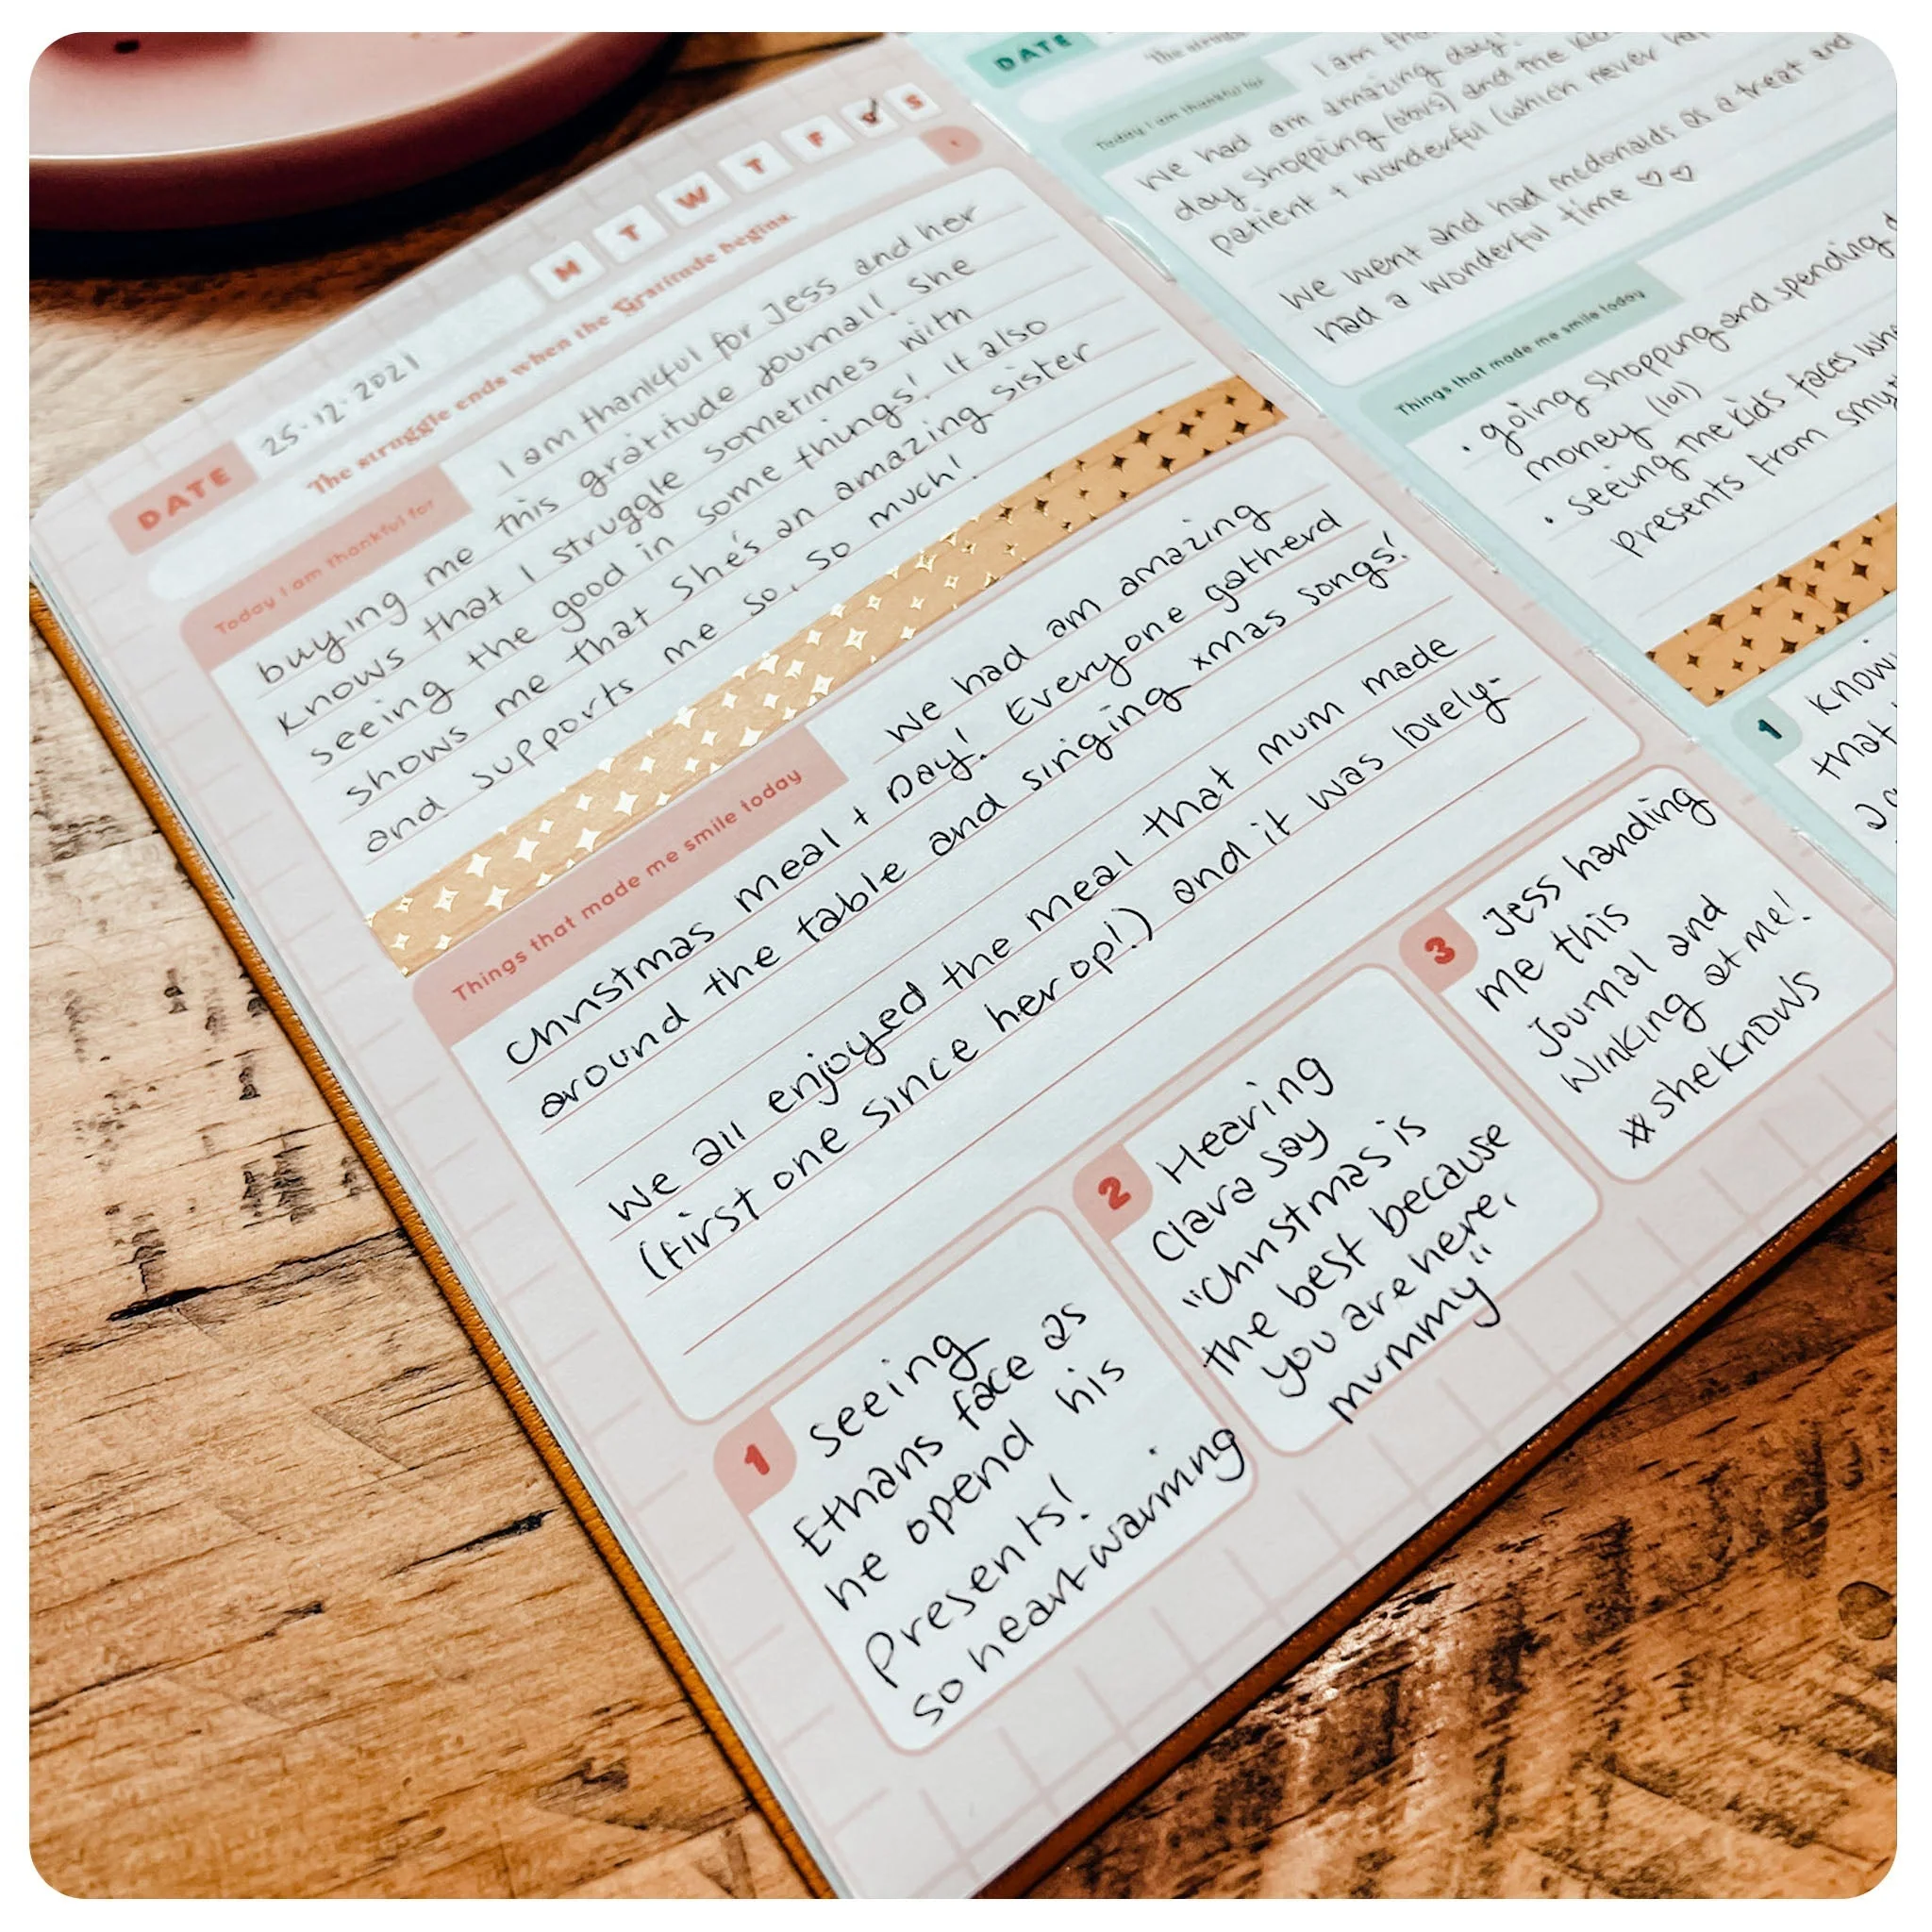 M T W T F S
DATE 25.12.2021
The struggle ends when the Gratitude begins.
Today I am thankful for
I am thankful for Jess and her
buying me this gratitude journal! She
knows that I struggle sometimes with
seeing the good in some things! It also
shows me that she's an amazing sister
and supports me so, so much!
Things that made me smile today
We had am amazing
Christmas meal + Day! Everyone gatherd
around the table and singing xmas songs!
We all enjoyed the meal that mum made
(first one since her op!) and it was lovely-
1
seeing
Ethans face as
he opend his
Presents!
so heart-warming
2
Hearing
Clara say
"Christmas is
the best because
you are here,
mummy"
3
Jess handing
me this
Journal and
winking at me!
#sheknows
DATE
The
Today I am thankful for
I am
We had am amazing day!
day shopping (obvs) and the
patient + wonderful (which never
We went and had mcdonalds as a treat and
had a wonderful time ♡♡
Things that made me smile today
• going shopping and spending
money (lol)
• seeing the kids faces
presents from
1
that